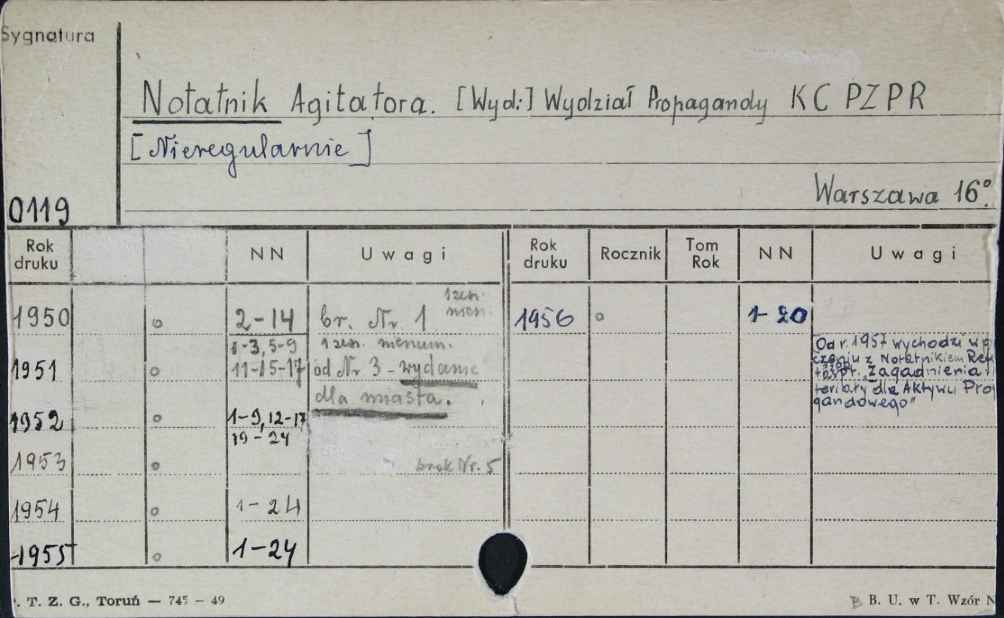 Sygnatura
Notatnik Agitatora. [Wyd:] Wydział Propagandy KC PZPR
[Nieregularnie]
Warszawa 16°.
0119
Rok druku NN Uwagi Rok druku Rocznik Tom Rok NN Uwagi
1950 2-14 br. Nr. 1 1956 1-20
1951 1-3, 5-9
11-15-17 od Nr 3 - wydanie
dla miasta.
1952 1-9, 12-17
19-24
1953 brak Nr. 5
1954 1-24
1955 1-24
Od r. 1957 wychodzi w
z Notatnikiem
Zagadnienia i
dla Aktywu Pro
gandowego"
. T. Z. G., Toruń — 745 — 49
B. U. w T. Wzór N